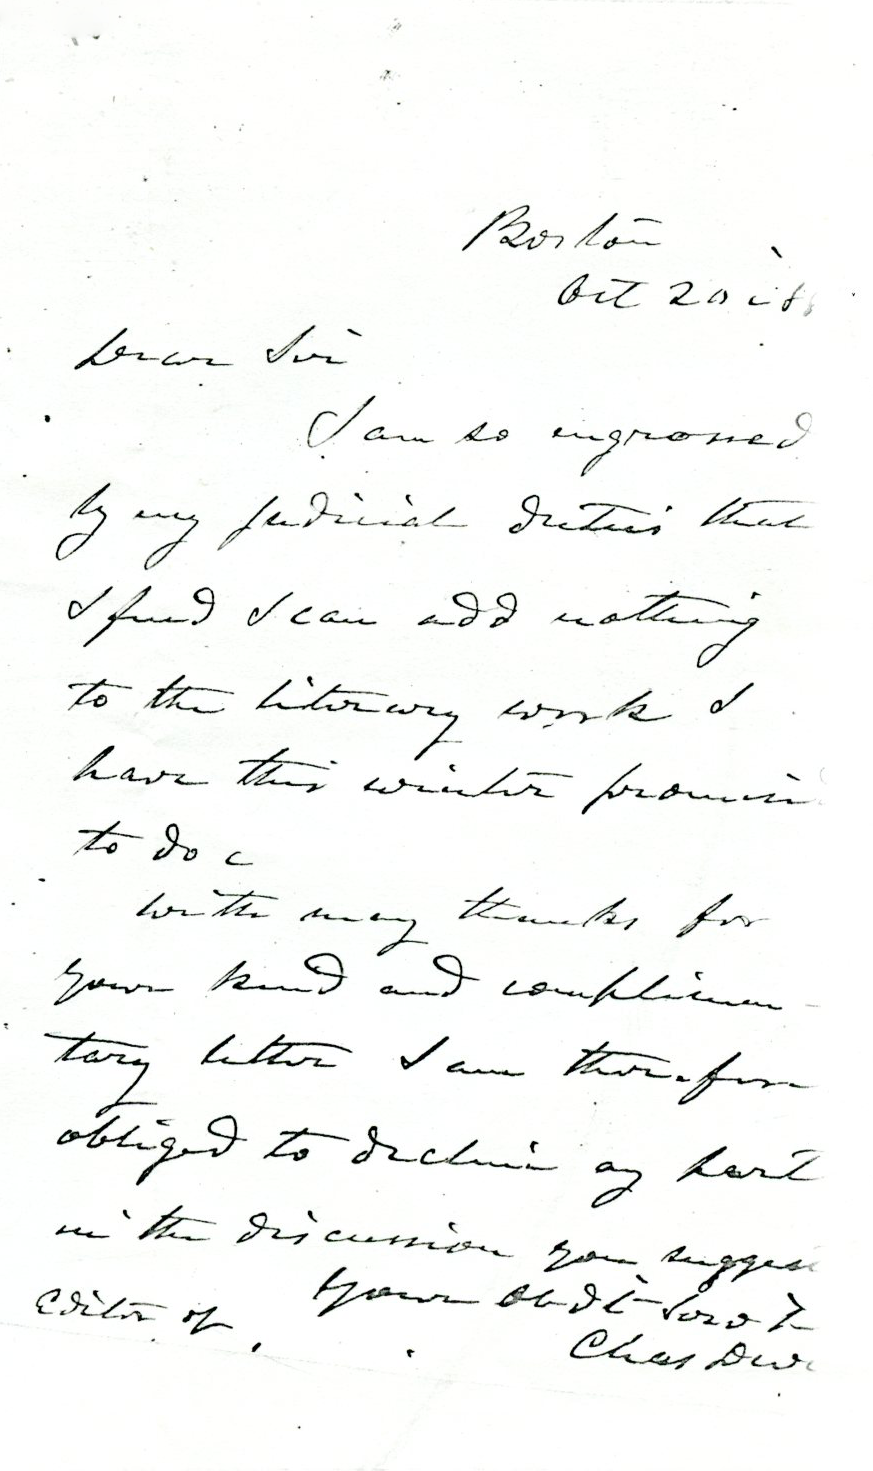 Boston
Oct 20 188
Dear Sir
I am so engrossed
by my judicial duties that
I find I can add nothing
to the literary work I
have this winter promis
to do
with many thanks for
your kind and complimen-
tary letter I am therefore
obliged to decline any part
in the discussion you sugges
Yours Obdt Servt
Editor of
Chas Dev